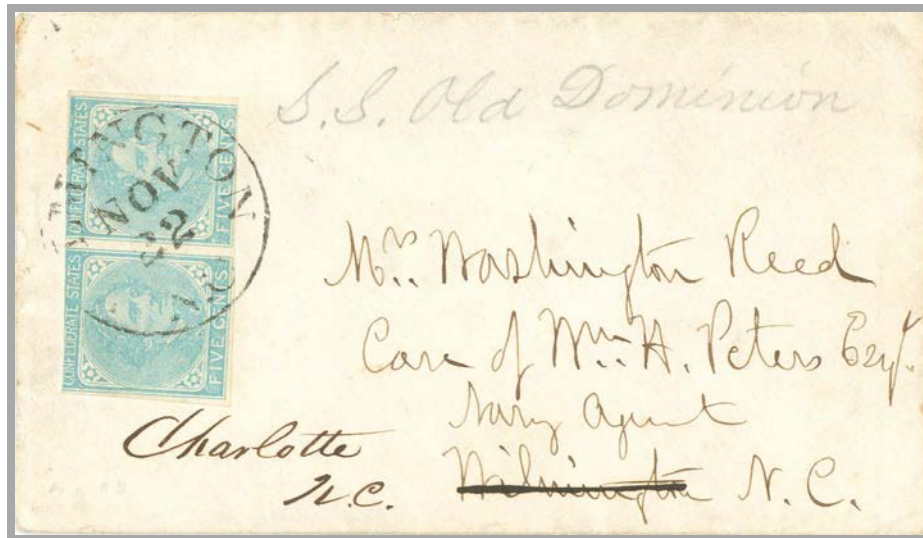 S.S. Old Dominion
CONFEDERATE STATES
FIVE CENTS
CONFEDERATE STATES
FIVE CENTS
NOV
22
Mrs. Washington Reed
Care of Wm. H. Peters Esqr.
Navy Agent
Wilmington N.C.
Charlotte
N.C.